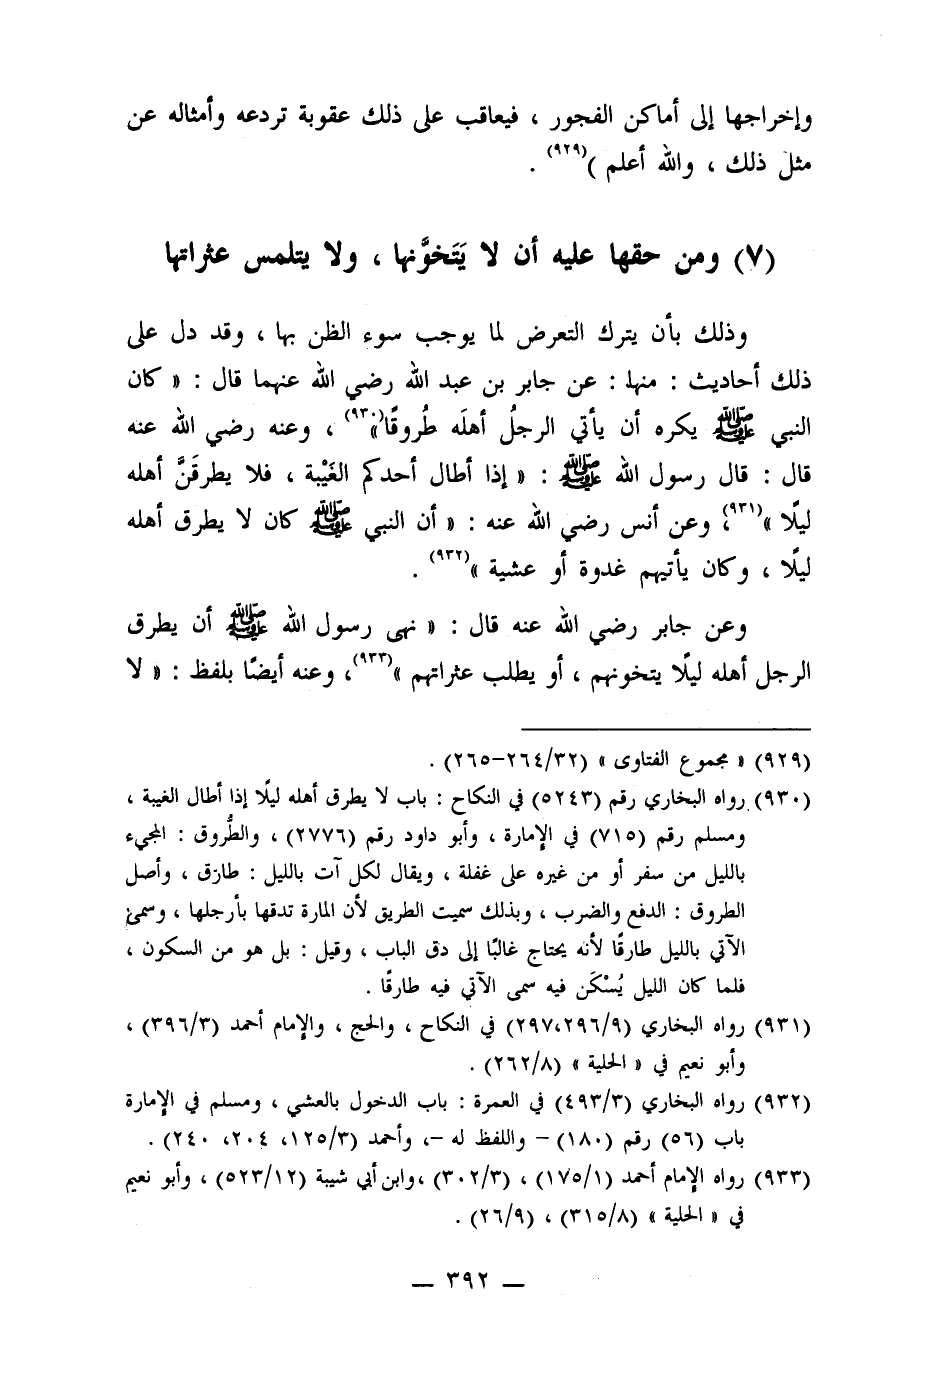 وإخراجها إلى أماكن الفجور ، فيعاقب على ذلك عقوبة تردعه وأمثاله عن
مثل ذلك ، والله أعلم )(٩٢٩) .
(٧) ومن حقها عليه أن لا يَتَخوَّنها ، ولا يتلمس عثراتها
وذلك بأن يترك التعرض لما يوجب سوء الظن بها ، وقد دل على
ذلك أحاديث : منها : عن جابر بن عبد الله رضي الله عنهما قال : « كان
النبي ﷺ يكره أن يأتي الرجلُ أهلَه طُروقًا»(٩٣٠) ، وعنه رضي الله عنه
قال : قال رسول الله ﷺ : « إذا أطال أحدكم الغَيْبة ، فلا يطرقَنَّ أهله
ليلًا »(٩٣١)، وعن أنس رضي الله عنه : « أن النبي ﷺ كان لا يطرق أهله
ليلًا ، وكان يأتيهم غدوة أو عشية »(٩٣٢) .
وعن جابر رضي الله عنه قال : « نهى رسول الله ﷺ أن يطرق
الرجل أهله ليلًا يتخونهم ، أو يطلب عثراتهم »(٩٣٣)، وعنه أيضًا بلفظ : « لا
(٩٢٩) « مجموع الفتاوى » (٢٦٤/٣٢–٢٦٥) .
(٩٣٠) رواه البخاري رقم (٥٢٤٣) في النكاح : باب لا يطرق أهله ليلًا إذا أطال الغيبة ،
ومسلم رقم (٧١٥) في الإمارة ، وأبو داود رقم (٢٧٧٦) ، والطُّروق : المجيء
بالليل من سفر أو من غيره على غفلة ، ويقال لكل آت بالليل : طارق ، وأصل
الطروق : الدفع والضرب ، وبذلك سميت الطريق لأن المارة تدقها بأرجلها ، وسمي
الآتي بالليل طارقًا لأنه يحتاج غالبًا إلى دق الباب ، وقيل : بل هو من السكون ،
فلما كان الليل يُسْكَن فيه سمى الآتي فيه طارقًا .
(٩٣١) رواه البخاري (٢٩٧،٢٩٦/٩) في النكاح ، والحج ، والإمام أحمد (٣٩٦/٣) ،
وأبو نعيم في « الحلية » (٢٦٢/٨) .
(٩٣٢) رواه البخاري (٤٩٣/٣) في العمرة : باب الدخول بالعشي ، ومسلم في الإمارة
باب (٥٦) رقم (١٨٠) – واللفظ له –، وأحمد (١٢٥/٣، ٢٠٤، ٢٤٠) .
(٩٣٣) رواه الإمام أحمد (١٧٥/١) ، (٣٠٢/٣) ،وابن أبي شيبة (٥٢٣/١٢) ، وأبو نعيم
في « الحلية » (٣١٥/٨) ، (٢٦/٩) .
— ٣٩٢ —